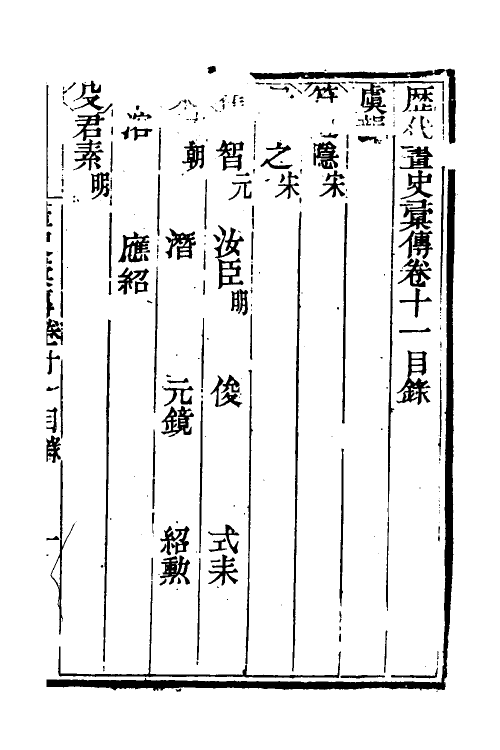 歷代畫史彙傳卷十一目錄
虞韻
隱宋
之宋
智元 汝臣明 俊 式耒
朝 潛 元鏡 紹勲
溶 應紹
殳君素明
畫史彙傳卷十一目錄 一